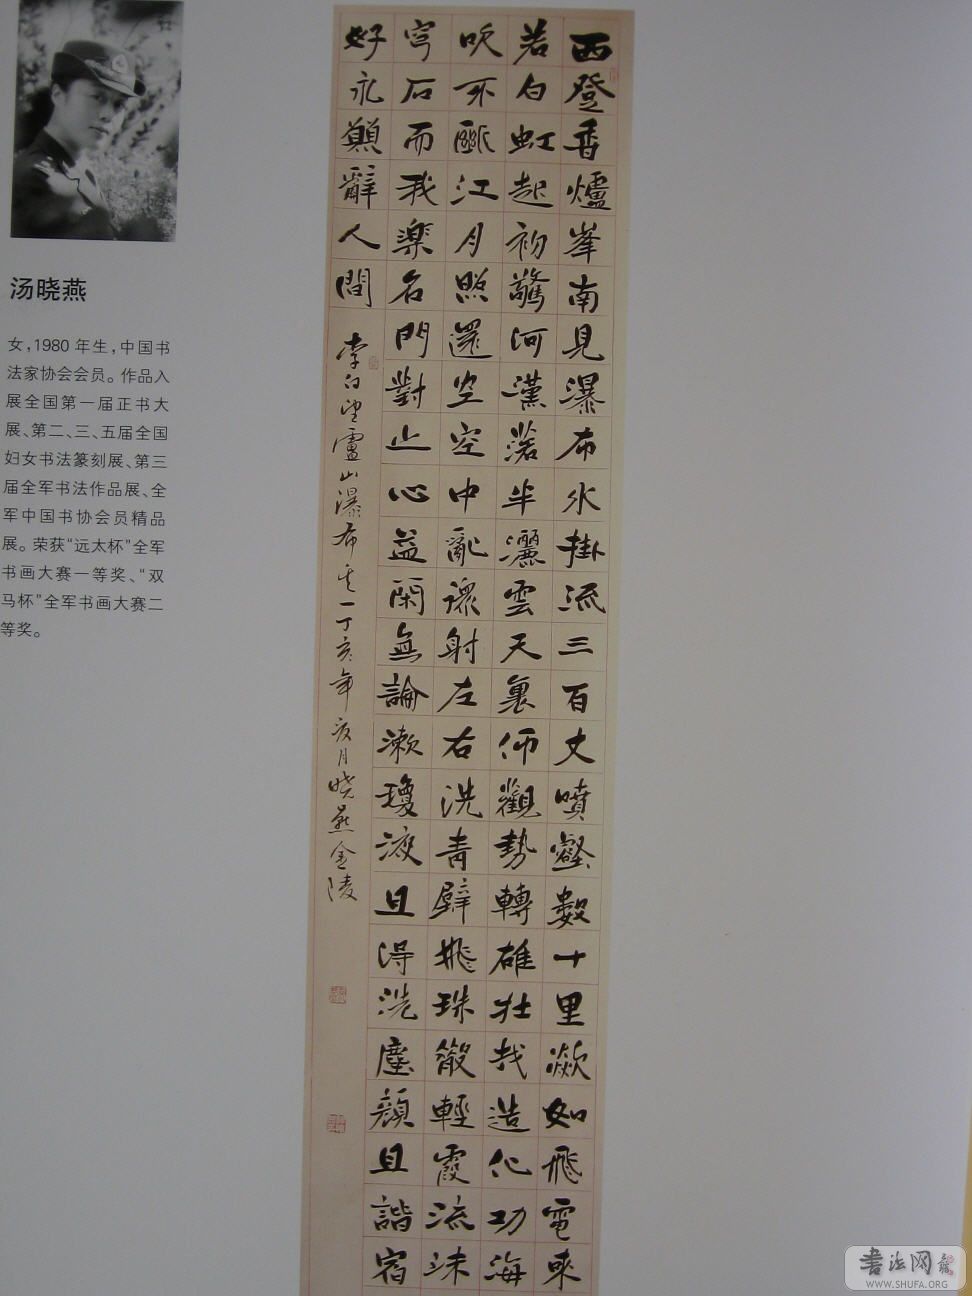 西登香爐峯南見瀑布水掛流三百丈噴壑數十里歘如飛電來
若白虹起初驚河漢落半灑雲天裏仰觀勢轉雄壯哉造化功海
吹不斷江月照還空空中亂潀射左右洗青壁飛珠散輕霞流沫
穹石而我樂名門對止心益閑無論漱瓊液且得洗塵顏且諧宿
好永願辭人間
李白望廬山瀑布其一丁亥年夏月曉燕金陵
汤晓燕
女,1980 年生,中国书
法家协会会员。作品入
展全国第一届正书大
展、第二、三、五届全国
妇女书法篆刻展、第三
届全军书法作品展、全
军中国书协会员精品
展。荣获“远太杯”全军
书画大赛一等奖、“双
马杯”全军书画大赛二
等奖。
書法网
WWW.SHUFA.ORG